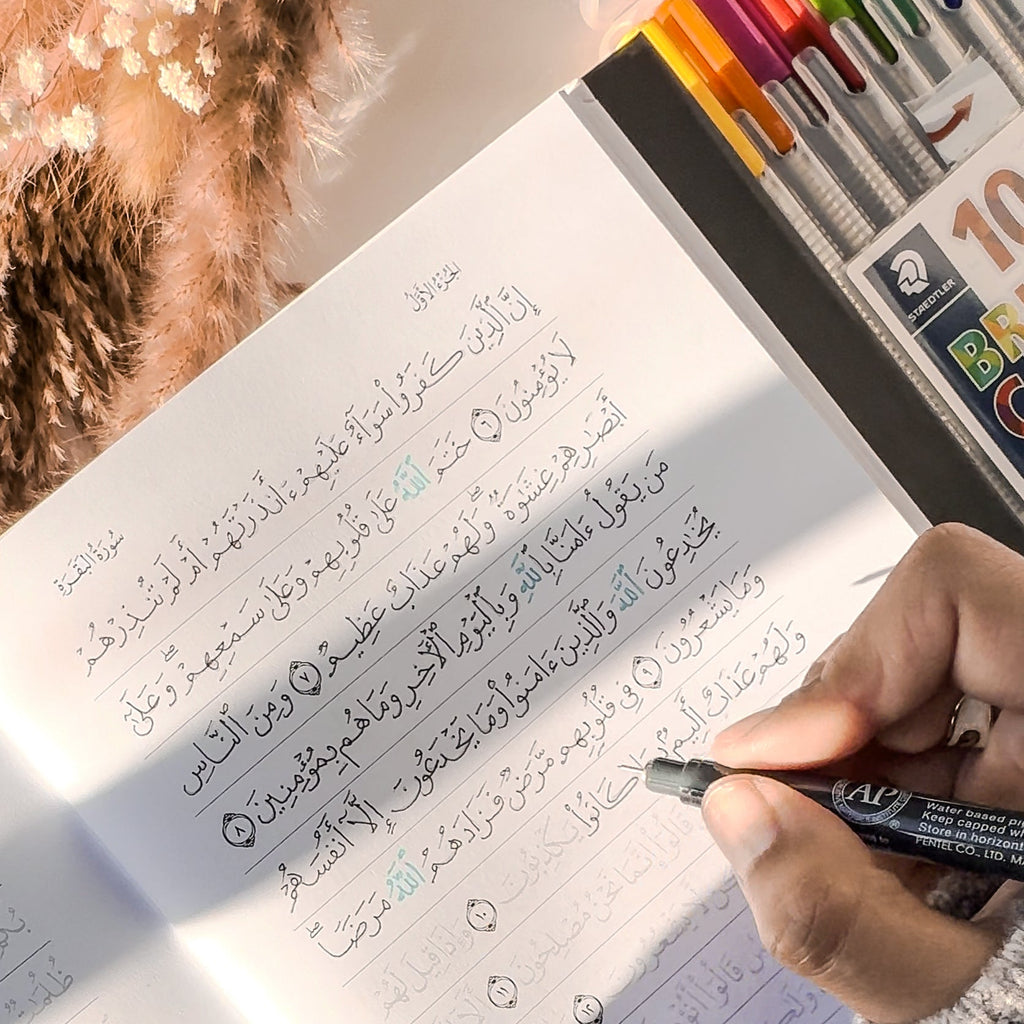 الجزء الأول
سورة البقرة
إِنَّ ٱلَّذِينَ كَفَرُوا۟ سَوَآءٌ عَلَيْهِمْ ءَأَنذَرْتَهُمْ أَمْ لَمْ تُنذِرْهُمْ
لَا يُؤْمِنُونَ ٦ خَتَمَ ٱللَّهُ عَلَىٰ قُلُوبِهِمْ وَعَلَىٰ سَمْعِهِمْ ۖ وَعَلَىٰٓ
أَبْصَٰرِهِمْ غِشَٰوَةٌ ۖ وَلَهُمْ عَذَابٌ عَظِيمٌ ٧ وَمِنَ ٱلنَّاسِ
مَن يَقُولُ ءَامَنَّا بِٱللَّهِ وَبِٱلْيَوْمِ ٱلْءَاخِرِ وَمَا هُم بِمُؤْمِنِينَ ٨
يُخَٰدِعُونَ ٱللَّهَ وَٱلَّذِينَ ءَامَنُوا۟ وَمَا يَخْدَعُونَ إِلَّآ أَنفُسَهُمْ
وَمَا يَشْعُرُونَ ٩ فِى قُلُوبِهِم مَّرَضٌ فَزَادَهُمُ ٱللَّهُ مَرَضًا ۖ
وَلَهُمْ عَذَابٌ أَلِيمٌۢ بِمَا كَانُوا۟ يَكْذِبُونَ ١٠ وَإِذَا قِيلَ لَهُمْ
قَالُوٓا۟ إِنَّمَا نَحْنُ مُصْلِحُونَ ١١
لَّا يَشْعُرُونَ ١٢
STAEDTLER
10
BR
AP
Water based
Keep capped
Store in horizont
PENTEL CO., LTD.